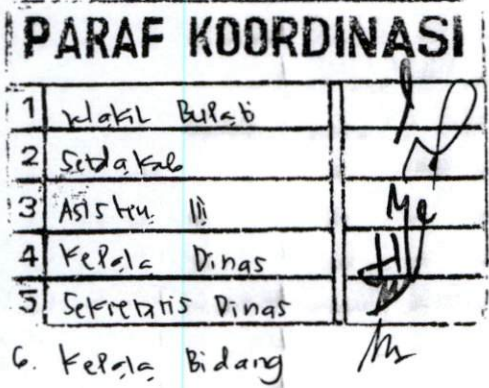 PARAF KOORDINASI
1 Wakil Bupati
2 Setdakab
3 Asisten III
4 Kepala Dinas
5 Sekretaris Dinas
6. Kepala Bidang